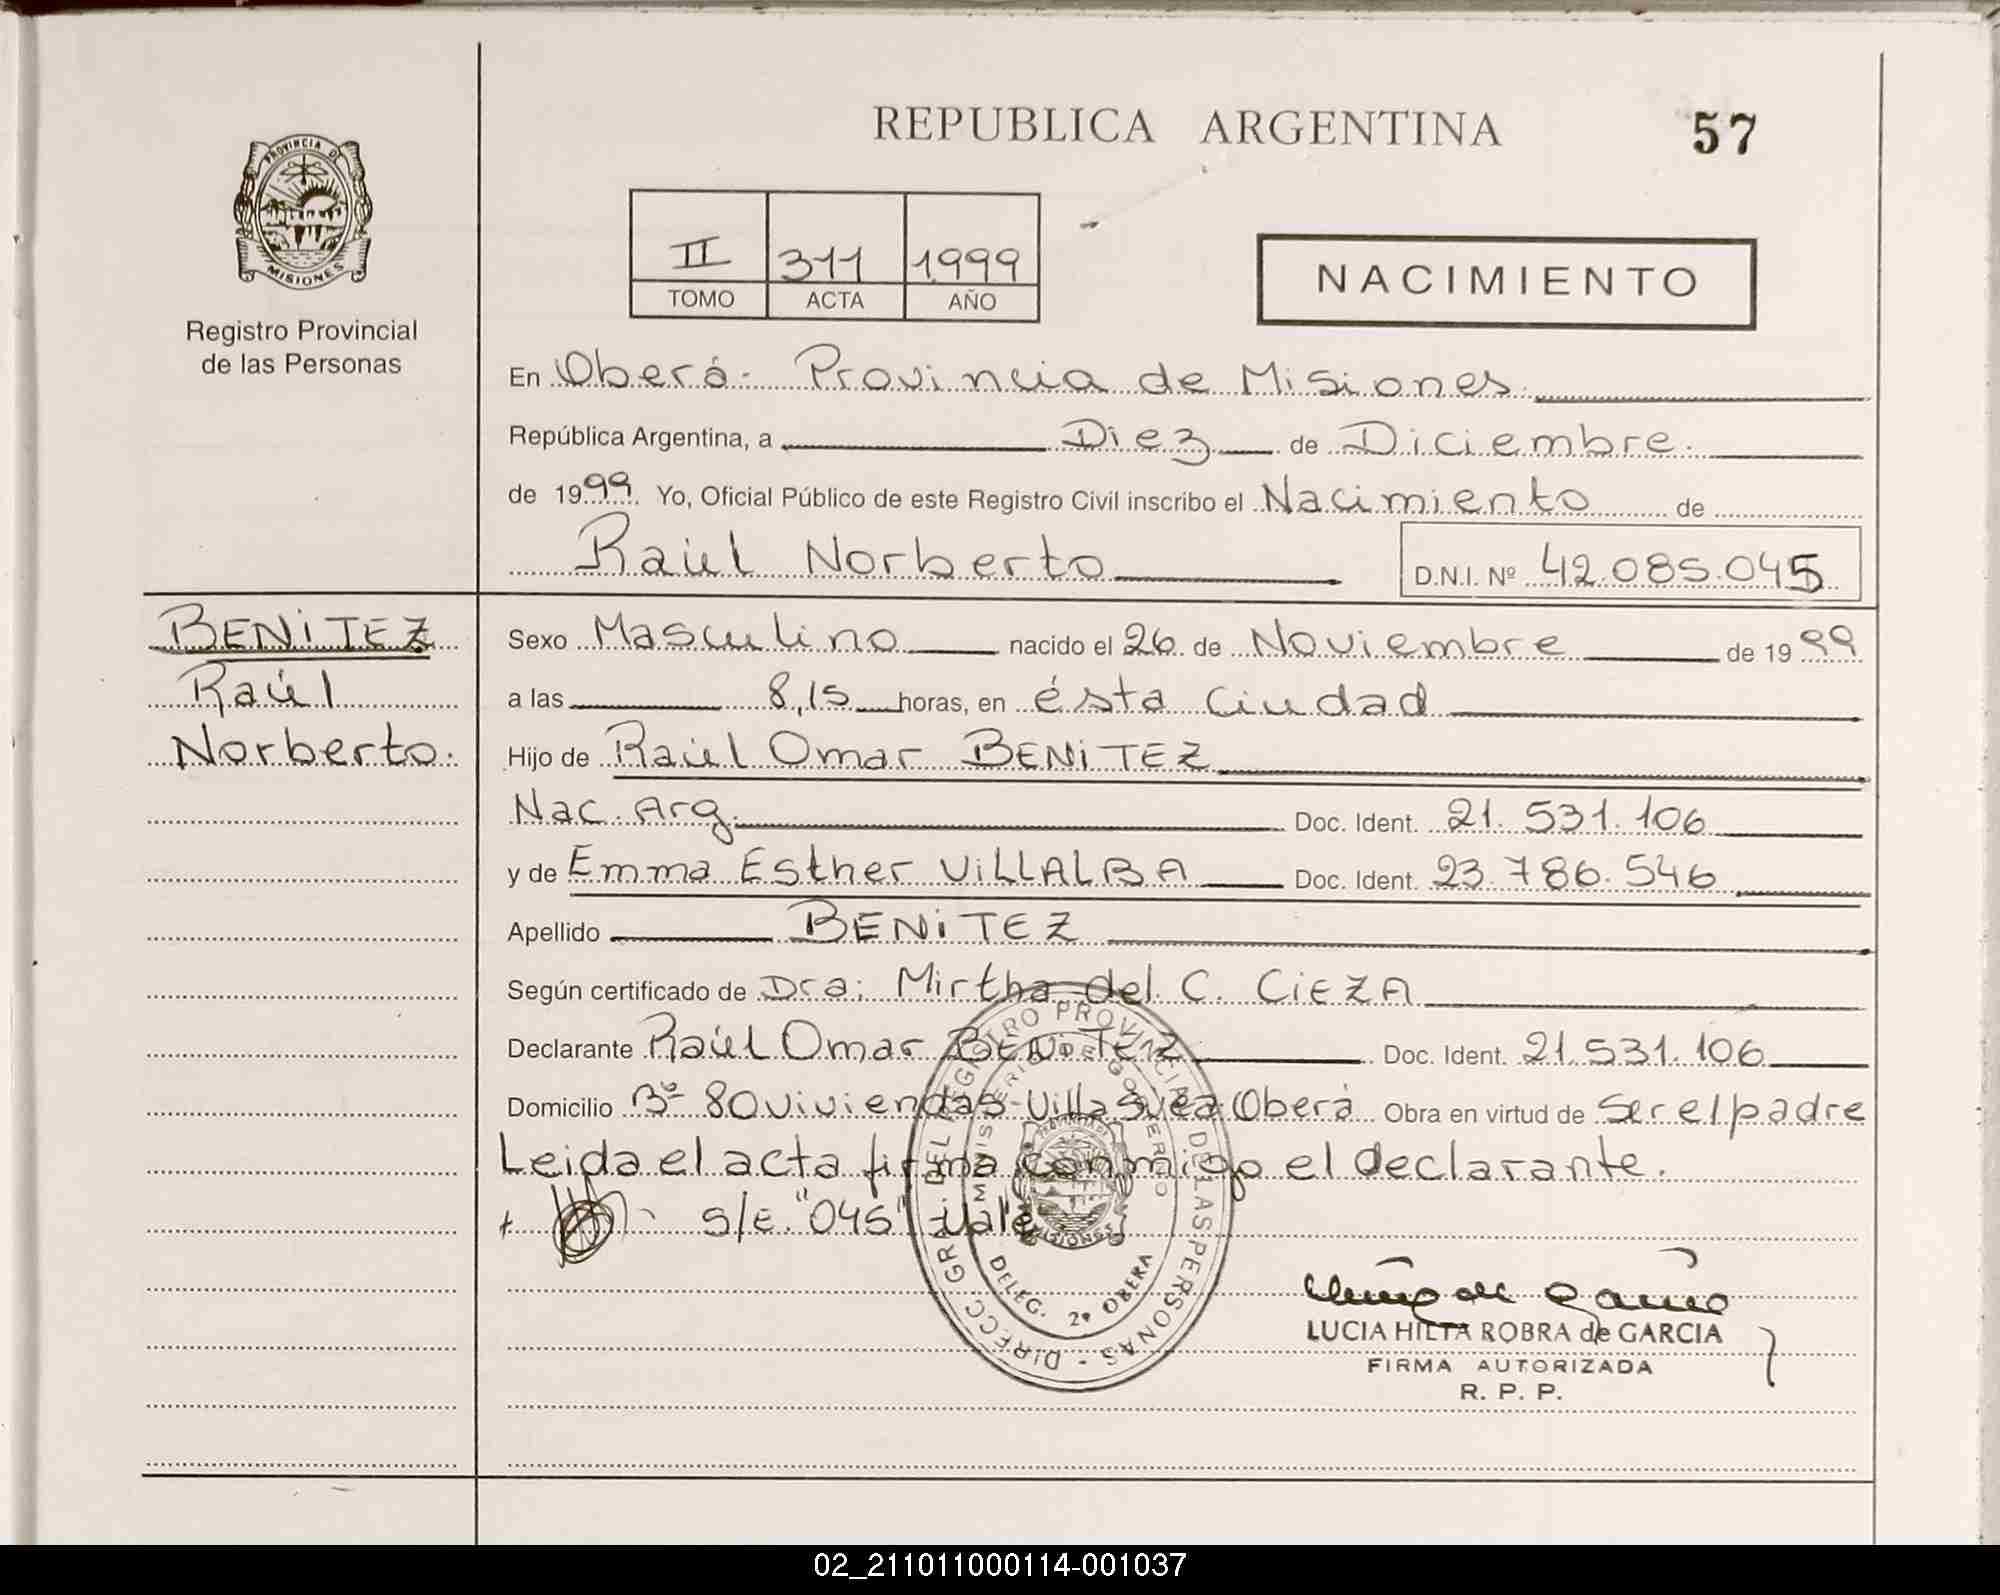 REPUBLICA ARGENTINA
57
PROVINCIA DE
MISIONES
Registro Provincial
de las Personas
II 311 1999
TOMO ACTA AÑO
NACIMIENTO
En Oberá - Provincia de Misiones
República Argentina, a Diez de Diciembre.
de 1999. Yo, Oficial Público de este Registro Civil inscribo el Nacimiento de
Raúl Norberto D.N.I. Nº 42.085.045
BENITEZ
Raúl
Norberto.
Sexo Masculino nacido el 26 de Noviembre de 1999
a las 8,15 horas, en ésta Ciudad
Hijo de Raúl Omar BENITEZ
Nac. Arg. Doc. Ident. 21.531.106
y de Emma Esther VILLALBA Doc. Ident. 23.786.546
Apellido BENITEZ
Según certificado de Dra: Mirtha del C. CIEZA
Declarante Raúl Omar BENITEZ Doc. Ident. 21.531.106
Domicilio Bº 80 viviendas - Villa Svea Oberá Obra en virtud de ser el padre
Leida el acta firma conmigo el declarante.
S/E. "045" - Vale
DIRECC. GRAL. DEL REGISTRO PROVINCIAL DE LAS PERSONAS -
MINISTERIO DE GOBIERNO
MISIONES
DELEG. 2º OBERA
LUCIA HILTA ROBRA de GARCIA
FIRMA AUTORIZADA
R. P. P.
02_211011000114-001037